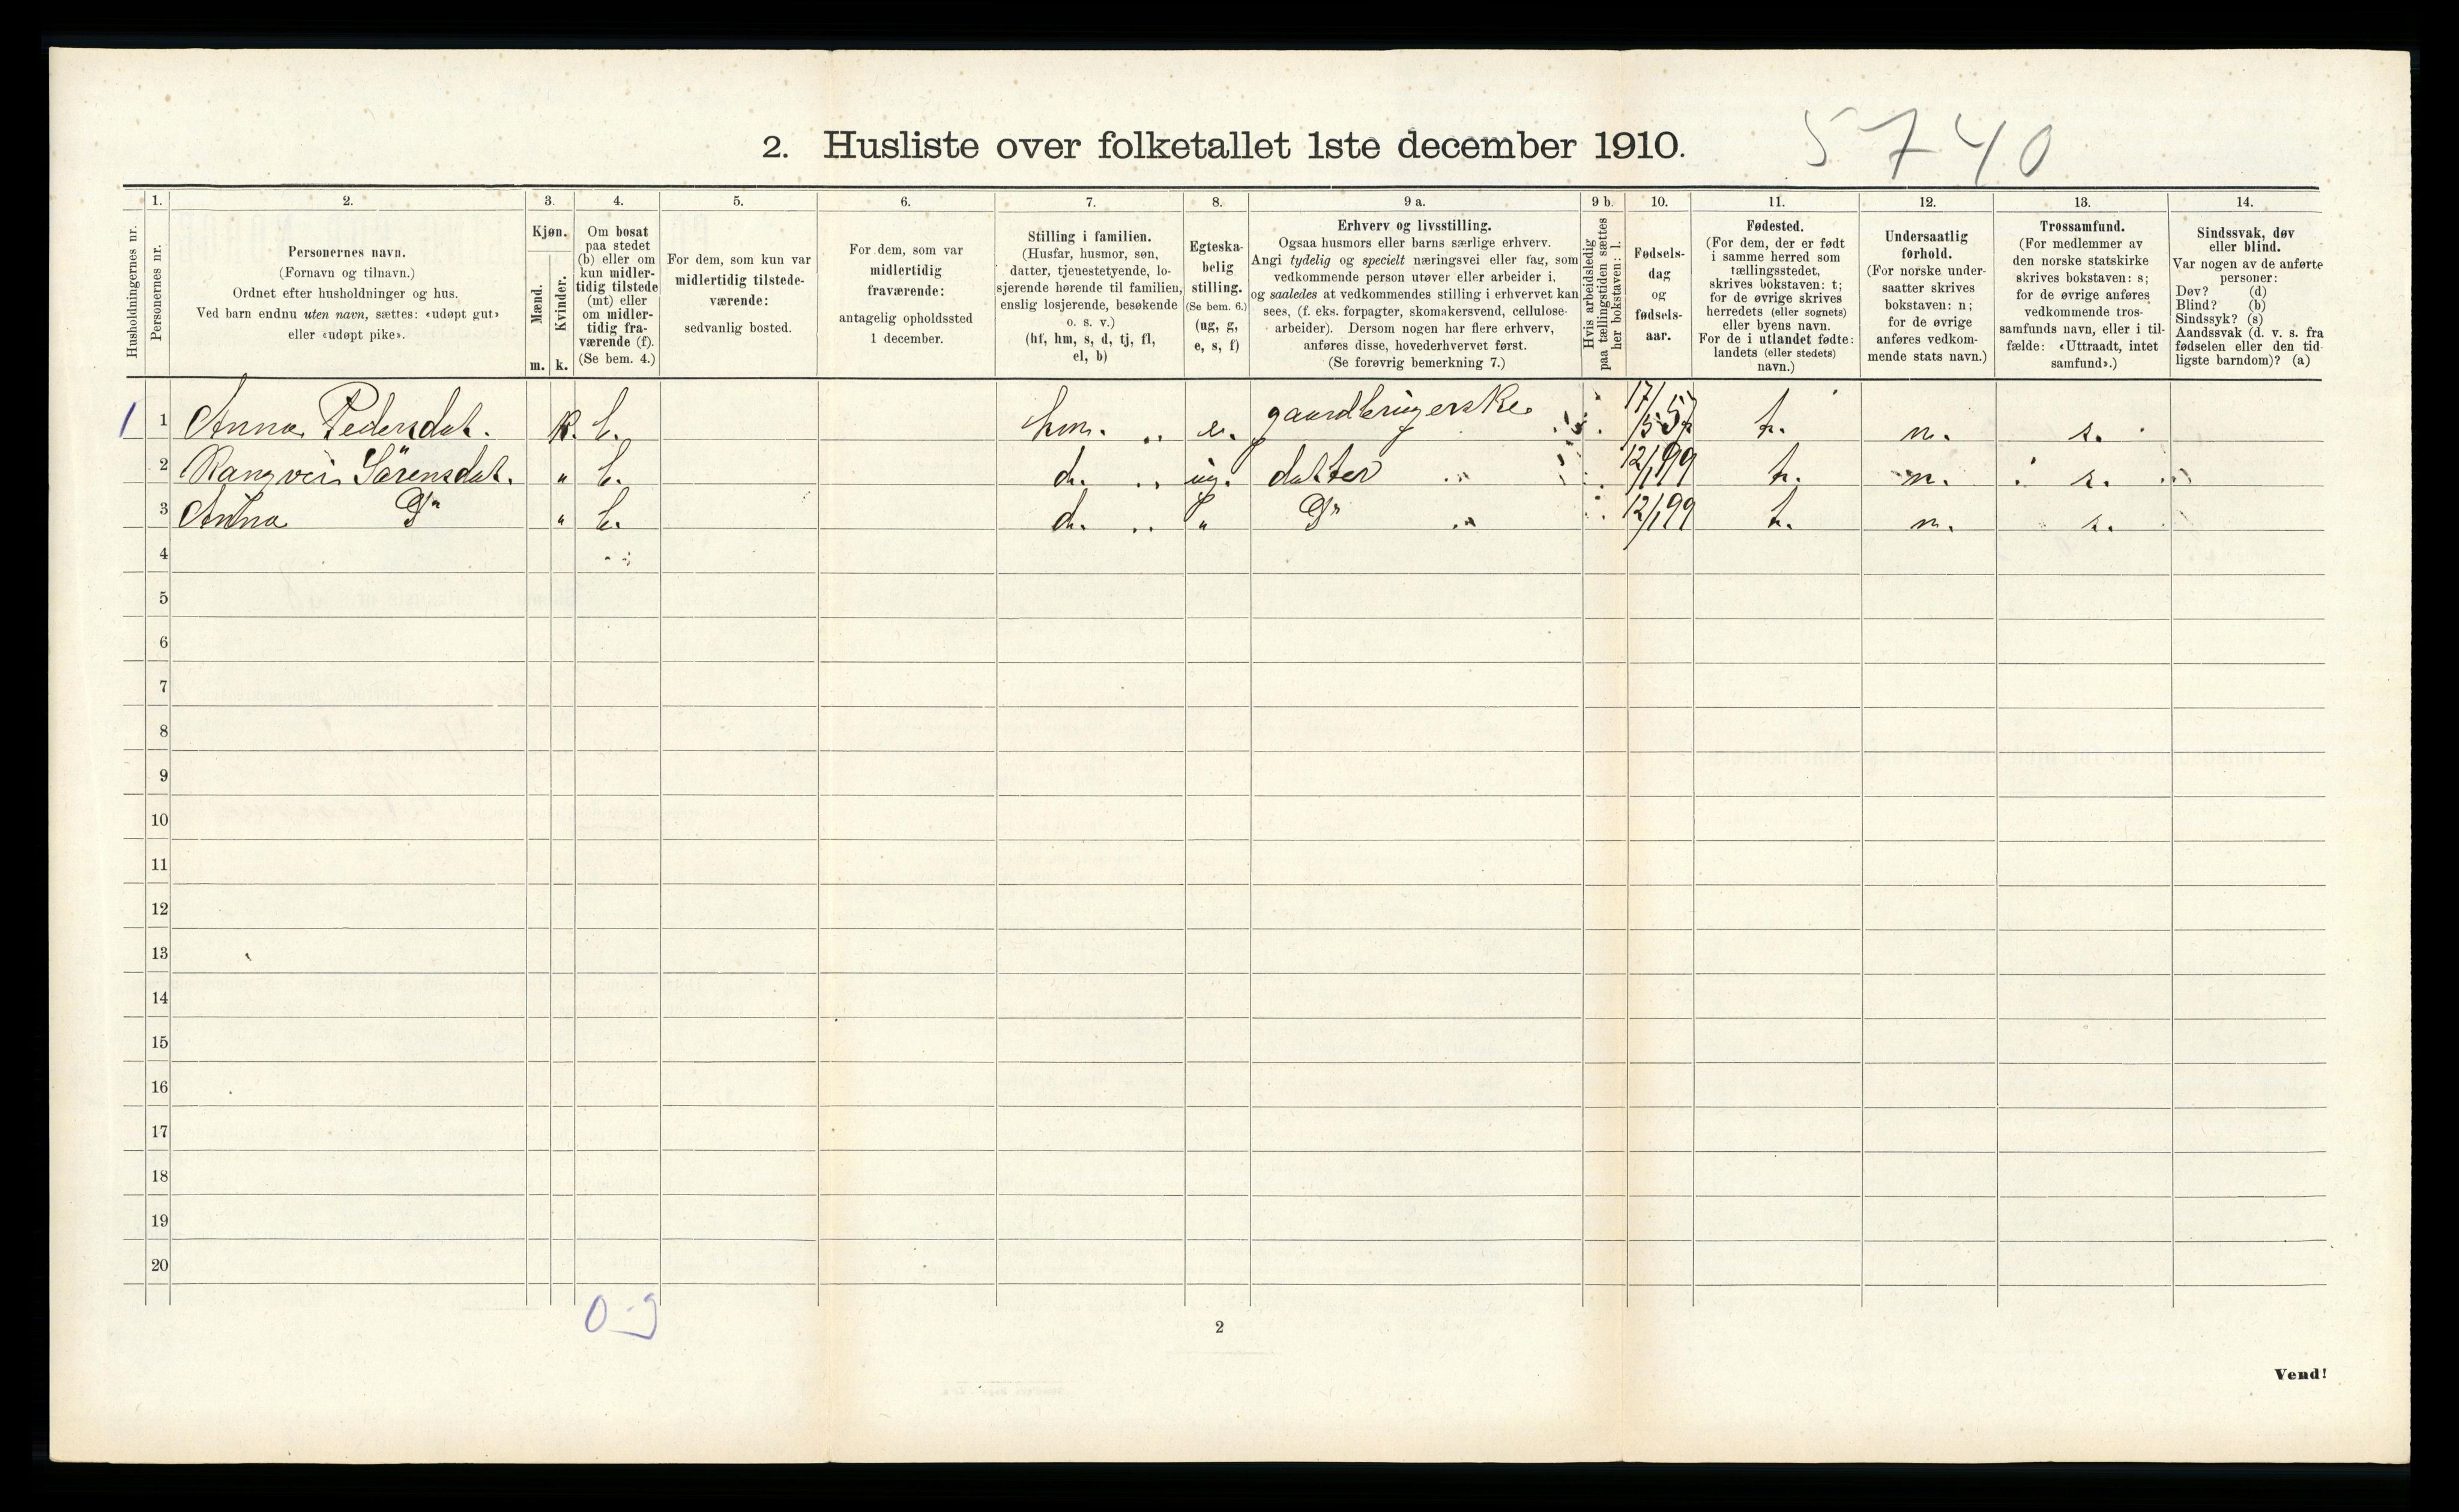 2. Husliste over folketallet 1ste december 1910.
5740
Husholdningernes nr.
1.
Personernes nr.
2.
Personernes navn.
(Fornavn og tilnavn.)
Ordnet efter husholdninger og hus.
Ved barn endnu uten navn, sættes: «udøpt gut»
eller «udøpt pike».
3.
Kjøn.
Mænd.
Kvinder.
m. k.
4.
Om bosat
paa stedet
(b) eller om
kun midler-
tidig tilstede
(mt) eller
om midler-
tidig fra-
værende (f).
(Se bem. 4.)
5.
For dem, som kun var
midlertidig tilstede-
værende:
sedvanlig bosted.
6.
For dem, som var
midlertidig
fraværende:
antagelig opholdssted
1 december.
7.
Stilling i familien.
(Husfar, husmor, søn,
datter, tjenestetyende, lo-
sjerende hørende til familien,
enslig losjerende, besøkende
o. s. v.)
(hf, hm, s, d, tj, fl,
el, b)
8.
Egteska-
belig
stilling.
(Se bem. 6.)
(ug, g,
e, s, f)
9 a.
Erhverv og livsstilling.
Ogsaa husmors eller barns særlige erhverv.
Angi tydelig og specielt næringsvei eller fag, som
vedkommende person utøver eller arbeider i,
og saaledes at vedkommendes stilling i erhvervet kan
sees, (f. eks. forpagter, skomakersvend, cellulose-
arbeider). Dersom nogen har flere erhverv,
anføres disse, hovederhvervet først.
(Se forøvrig bemerkning 7.)
9 b.
Hvis arbeidsledig
paa tællingstiden sættes
her bokstaven: l.
10.
Fødsels-
dag
og
fødsels-
aar.
11.
Fødested.
(For dem, der er født
i samme herred som
tællingsstedet,
skrives bokstaven: t;
for de øvrige skrives
herredets (eller sognets)
eller byens navn.
For de i utlandet fødte:
landets (eller stedets)
navn.)
12.
Undersaatlig
forhold.
(For norske under-
saatter skrives
bokstaven: n;
for de øvrige
anføres vedkom-
mende stats navn.)
13.
Trossamfund.
(For medlemmer av
den norske statskirke
skrives bokstaven: s;
for de øvrige anføres
vedkommende tros-
samfunds navn, eller i til-
fælde: «Uttraadt, intet
samfund».)
14.
Sindssvak, døv
eller blind.
Var nogen av de anførte
personer:
Døv? (d)
Blind? (b)
Sindssyk? (s)
Aandssvak (d. v. s. fra
fødselen eller den tid-
ligste barndom)? (a)
1 1 Anna Pedersdat. k. b. hm. e. gaardbrugerske 17/5 57 t. n. s.
2 Rangvei Särensdat. " b. d. ug. datter 12/1 99 t. n. s.
3 Anna Do " b. d. " Do 12/1 99 t. n. s.
4
5
6
7
8
9
10
11
12
13
14
15
16
17
18
19
20
0-3
2
Vend!